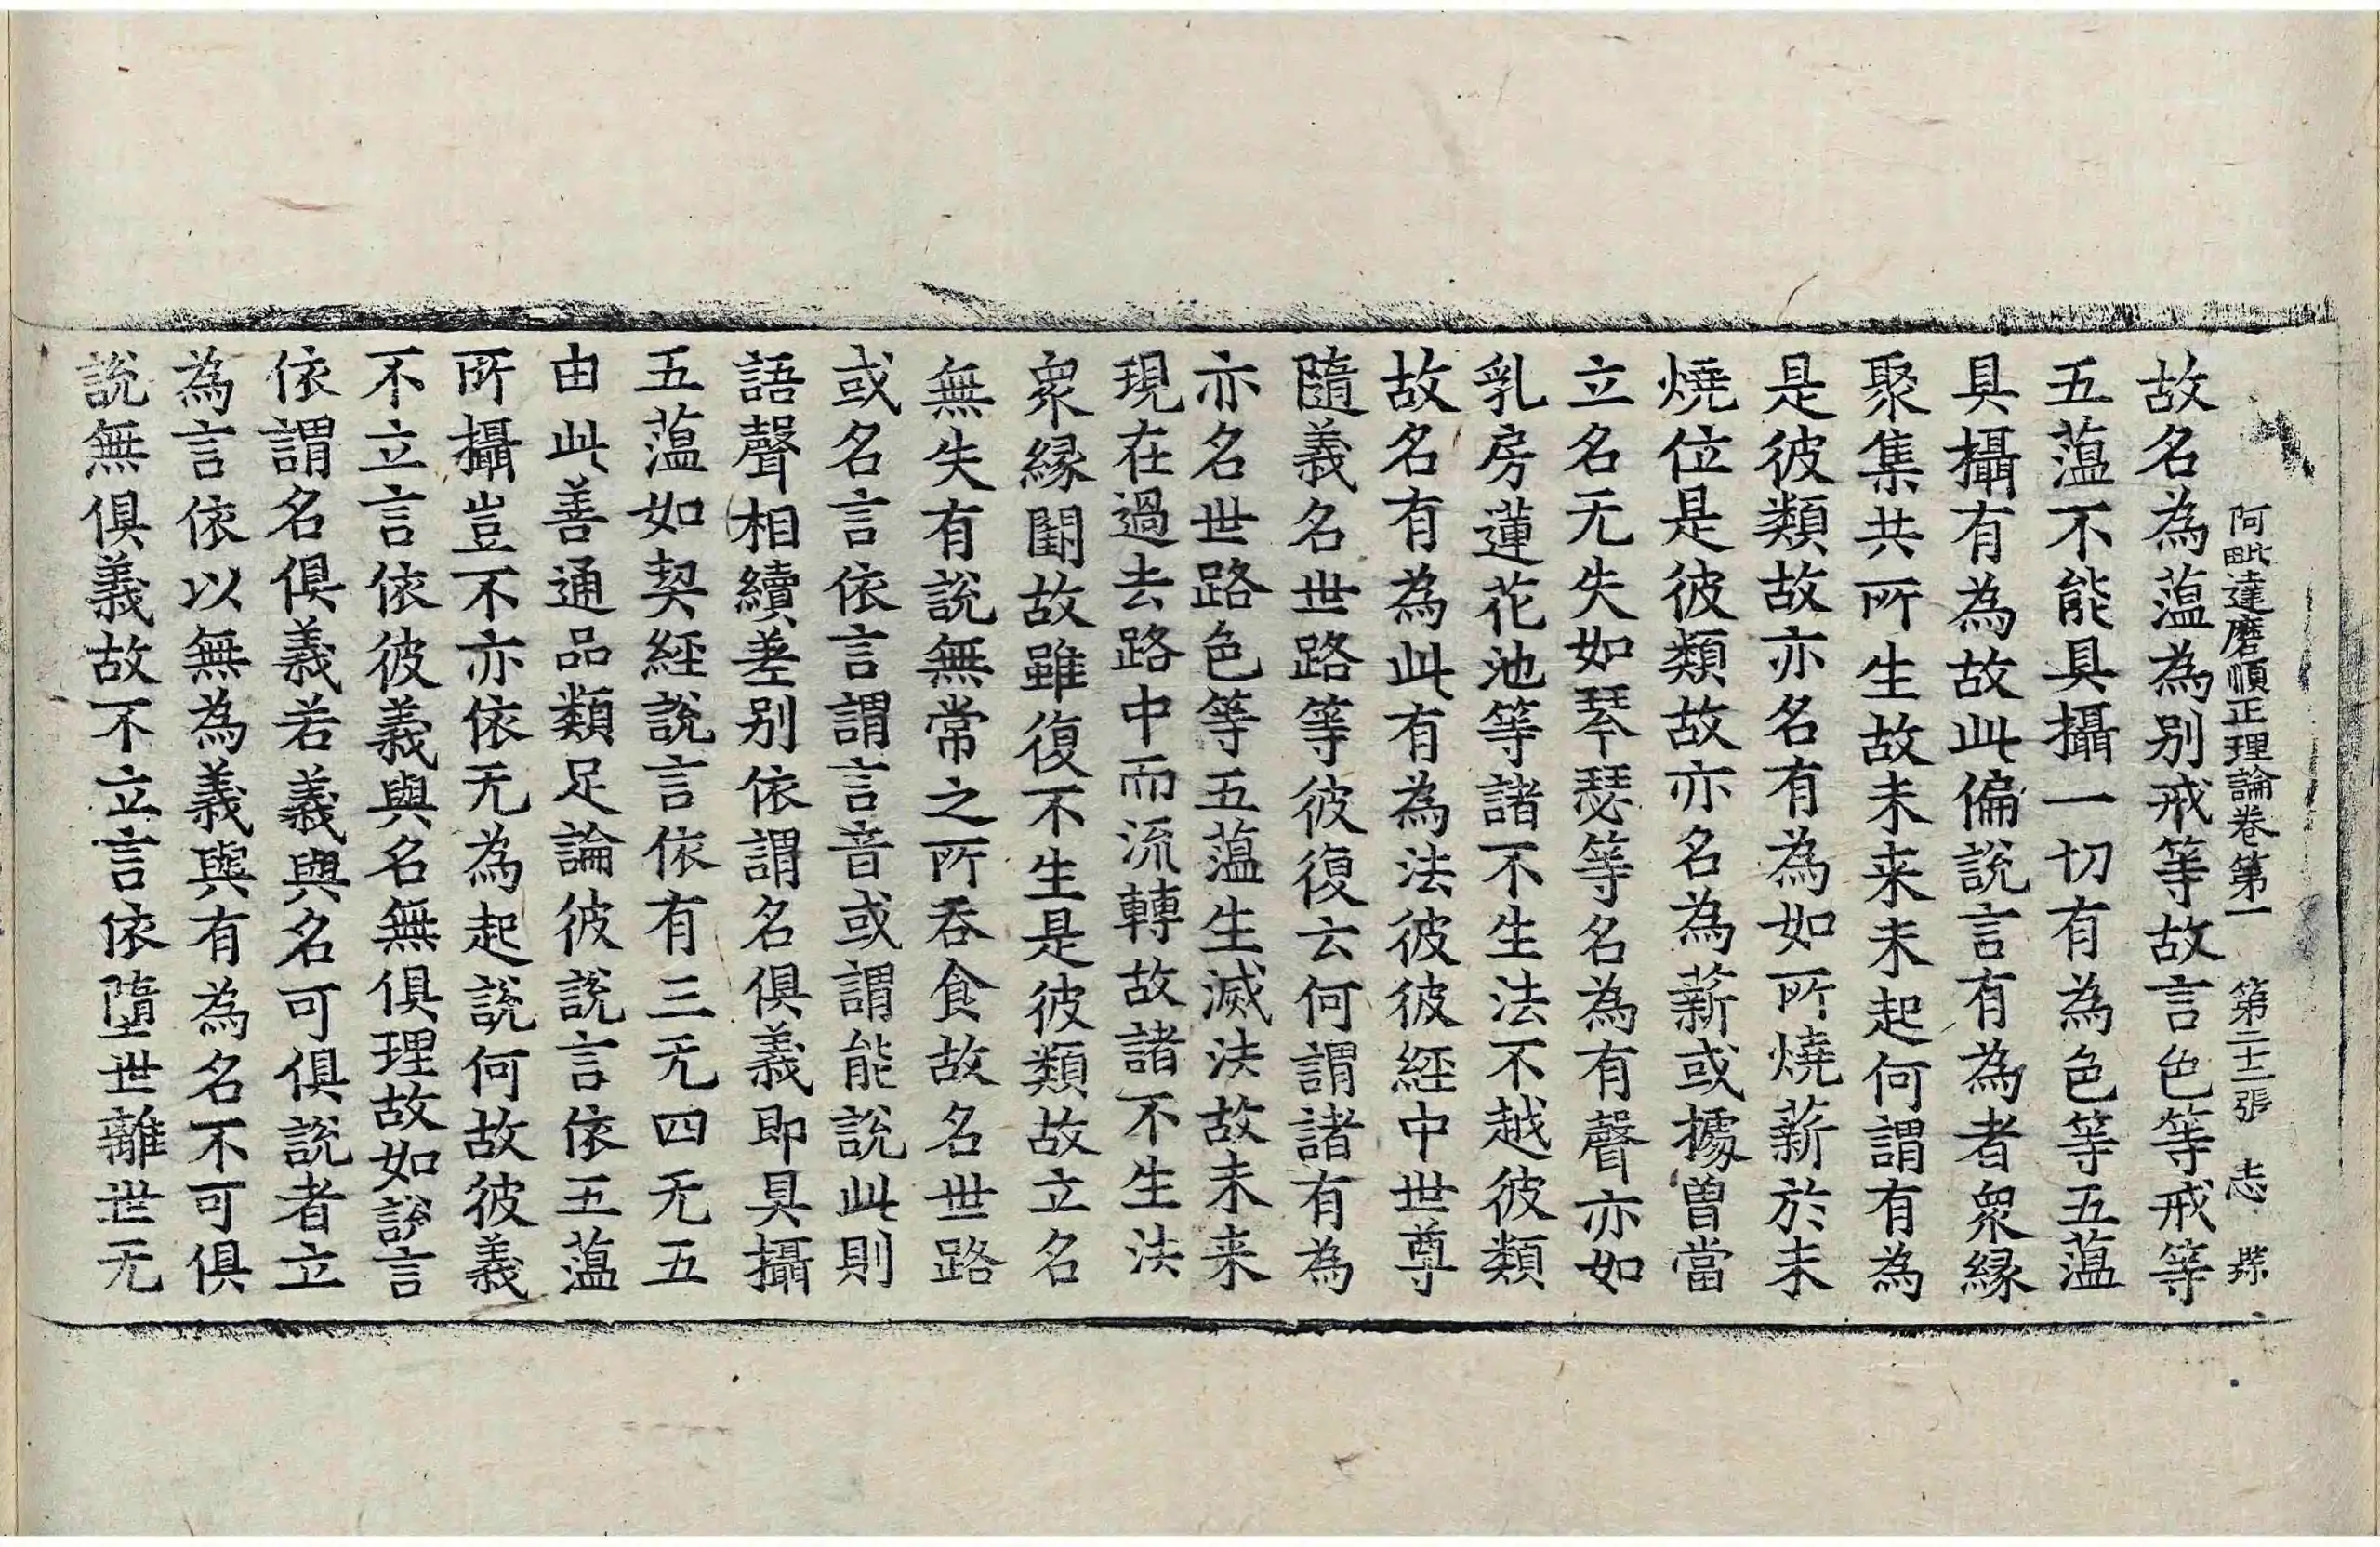 阿毗達磨順正理論卷第一 第二十二張 志
故名為薀為別戒等故言色等戒等
五薀不能具攝一切有為色等五薀
具攝有為故此偏說言有為者衆緣
聚集共所生故未来未起何謂有為
是彼類故亦名有為如所燒薪於未
燒位是彼類故亦名為薪或據曾當
立名无失如琴瑟等名為有聲亦如
乳房蓮花池等諸不生法不越彼類
故名有為此有為法彼彼經中世尊
隨義名世路等彼復云何謂諸有為
亦名世路色等五薀生滅法故未来
現在過去路中而流轉故諸不生法
衆緣闕故雖復不生是彼類故立名
無失有說無常之所吞食故名世路
或名言依言謂言音或謂能說此則
語聲相續差別依謂名俱義即具攝
五薀如契經說言依有三无四无五
由此善通品類足論彼說言依五薀
所攝豈不亦依无為起說何故彼義
不立言依彼義與名無俱理故如說言
依謂名俱義若義與名可俱說者立
為言依以無為義與有為名不可俱
說無俱義故不立言依墮世離世无